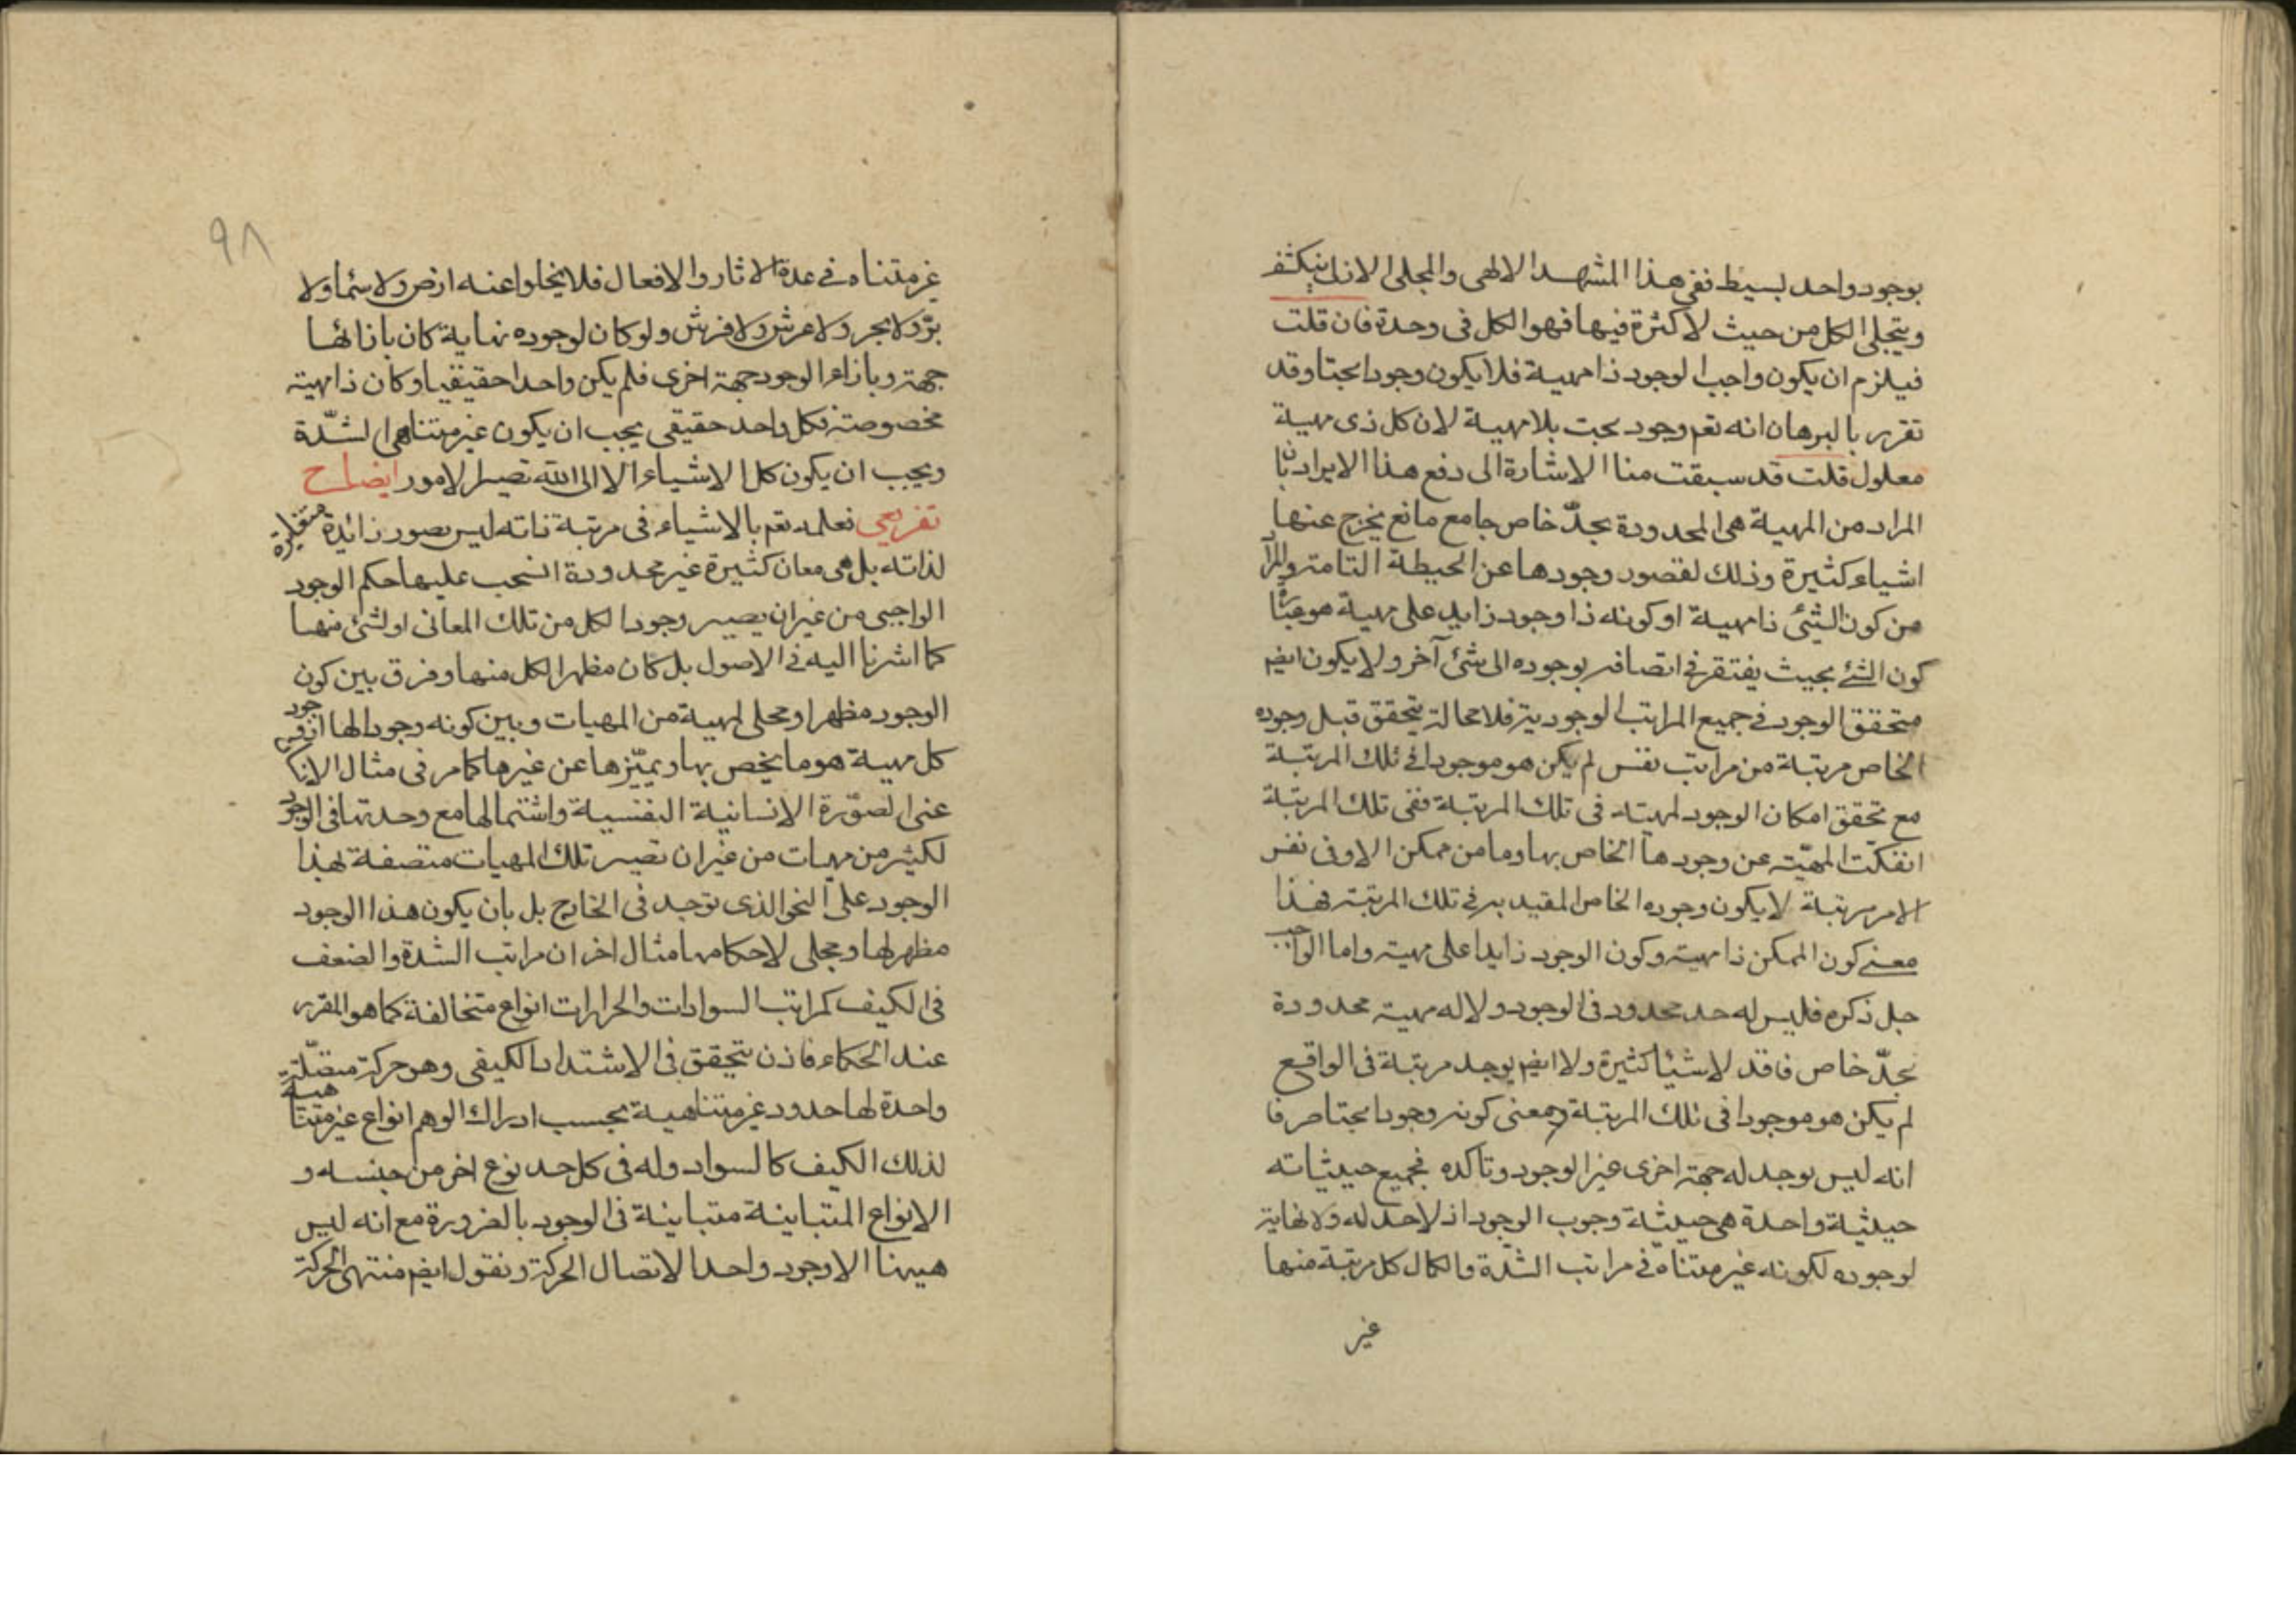 بوجود واحد بسيط ففي هذا المشهد الالهى والمجلى الازلى ينكشف
ويتجلى الكل من حيث لا كثرة فيها فهو الكل فى وحدة فان قلت
فيلزم ان يكون واجب الوجود ذا مهية فلا يكون وجودا بحتا وقد
تقرر بالبرهان انه تعم وجود بحت بلا مهية لان كل ذى مهية
معلول قلت قد سبقت منا الاشارة الى دفع هذا الايراد بان
المراد من المهية هى المحدودة بحدّ خاص جامع مانع يخرج عنها
اشياء كثيرة وذلك لقصور وجودها عن الحيطة التامة والمراد
من كون الشئ ذا مهية او كونه ذا وجود زايد على مهية هو عبارة
كون الشئ بحيث يفتقر فى اتصافه بوجوده الى شئ آخر ولا يكون ايضم
متحقق الوجود فى جميع المراتب الوجودية فلا محالة يتحقق قبل وجوده
الخاص مرتبة من مراتب نفس لم يكن هو موجودا فى تلك المرتبة
مع تحقق امكان الوجود لمهيته فى تلك المرتبة ففى تلك المرتبة
انفكت المهيّة عن وجودها الخاص بها وما من ممكن الا وفى نفس
الامر مرتبة لا يكون وجوده الخاص المقيد به فى تلك المرتبة فهذا
معنى كون الممكن ذا مهية وكون الوجود زايدا على مهيته واما الواجب
جل ذكره فليس له حد محدود فى الوجود ولا له مهية محدودة
بحدّ خاص فاقد لاشيا كثيرة ولا ايضم يوجد مرتبة فى الواقع
لم يكن هو موجودا فى تلك المرتبة ومعنى كونه وجودا بحتا صرفا
انه ليس يوجد له جهة اخرى غير الوجود وتاكده فجميع حيثياته
حيثية واحدة هى حيثية وجوب الوجود اذ لا حد له ولا نهاية
لوجوده لكونه غير متناه فى مراتب الشدّة والكمال كل مرتبة منها
غير
٩٨
غير متناه فى عدة الاثار والافعال فلا يخلوا عنه ارض ولا سماء ولا
برّ ولا بحر ولا عرش ولا فرش ولو كان لوجوده نهاية كان بازائها
جهة وبازاء الوجود جهة اخرى فلم يكن واحدا حقيقيا وكان ذا مهية
مخصوصة فكل واحد حقيقى يجب ان يكون غير متناهى الشدّة
ويجب ان يكون كل الاشياء الا الى الله تصير الامور ايضاح
تفريعى فعلمه تعم بالاشياء فى مرتبة ذاته ليس بصور زائدة متغايرة
لذاته بل هى معان كثيرة غير محدودة انسحب عليها حكم الوجود
الواجبى من غير ان يصير وجودا لكل من تلك المعانى او لشئ منها
كما اشرنا اليه فى الاصول بل كان مظهرا لكل منها وفرق بين كون
الوجود مظهرا ومجلى لمهية من المهيات وبين كونه وجودا لها اذ وجود
كل مهية هو ما يخص بها ويميّزها عن غيرها كما مر فى مثال الانسان
عنى الصّورة الانسانية النفسية واشتمالها مع وحدتها فى الوجود
لكثير من مهيات من غير ان تصير تلك المهيات متصفة بهذا
الوجود على النحو الذى توجد فى الخارج بل بان يكون هذا الوجود
مظهر لها ومجلى لاحكامها مثال اخر ان مراتب الشدة والضعف
فى الكيف كمراتب السوادات والحرارات انواع متخالفة كما هو المقرر
عند الحكماء فاذن يتحقق فى الاشتداد الكيفى وهو حركة متصّلة
واحدة لها حدود غير متناهية بحسب ادراك الوهم انواع غير متناهية
لذلك الكيف كالسواد وله فى كل حد نوع اخر من جنسه و
الانواع المتباينة متباينة فى الوجود بالضرورة مع انه ليس
هيهنا الا وجود واحد الاتصال الحركة ونقول ايضم منتهى الحركة